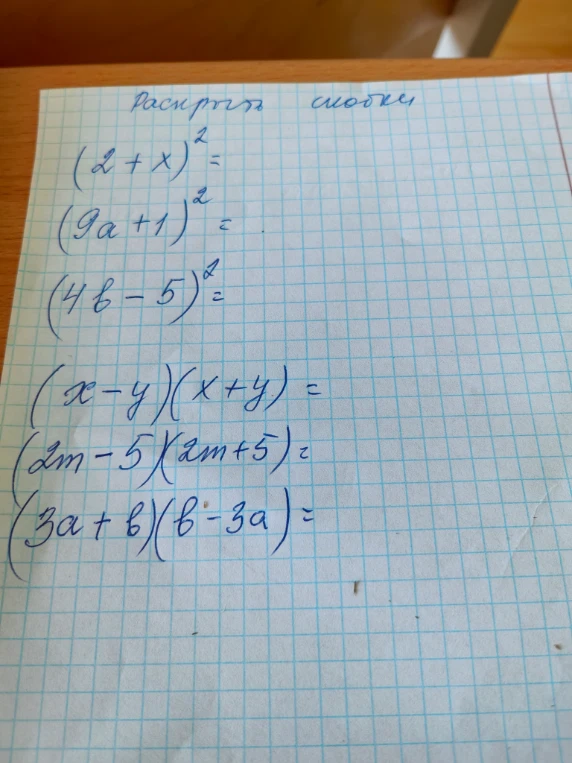 Раскрыть скобки
(2 + x)² =
(9a + 1)² =
(4в - 5)² =
(x - y)(x + y) =
(2m - 5)(2m + 5) =
(3a + в)(в - 3a) =